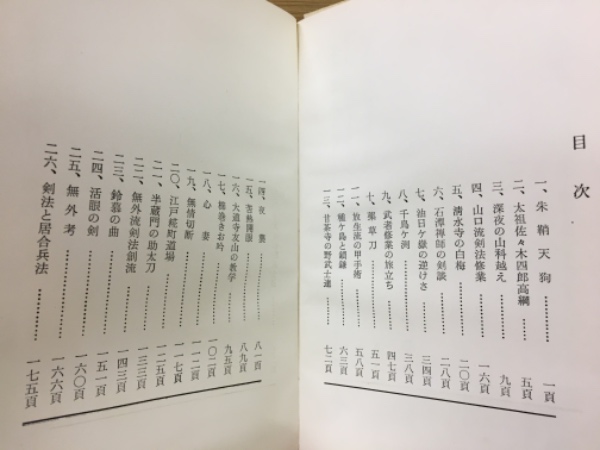 目次
一、朱鞘天狗…………一頁
二、太祖佐々木四郎高綱…………五頁
三、深夜の山科越え…………九頁
四、山口流剣法修業…………一六頁
五、清水寺の白梅…………二〇頁
六、石潭禅師の剣談…………二八頁
七、油日ケ嶽の逆けさ…………三四頁
八、千鳥ケ渕…………三八頁
九、武者修業の旅立ち…………四七頁
十、薬草刀…………五一頁
一一、放生流の甲手術…………五八頁
一二、種ケ島と鎖鎌…………六三頁
一三、甘茶寺の野武士達…………七二頁
一四、夜…………八一頁
一五、…………八九頁
一六、大道寺友山の教学…………九五頁
一七、鵜巻きお吟…………一〇二頁
一八、心妻…………一〇九頁
一九、無情切断…………一一七頁
二〇、江戸糀町道場…………一二五頁
二一、半蔵門の助太刀…………一三三頁
二二、無外流剣法創流…………一四三頁
二三、鈴慕の曲…………一五一頁
二四、活眼の剣…………一六〇頁
二五、無外考…………一六六頁
二六、剣法と居合兵法…………一七五頁